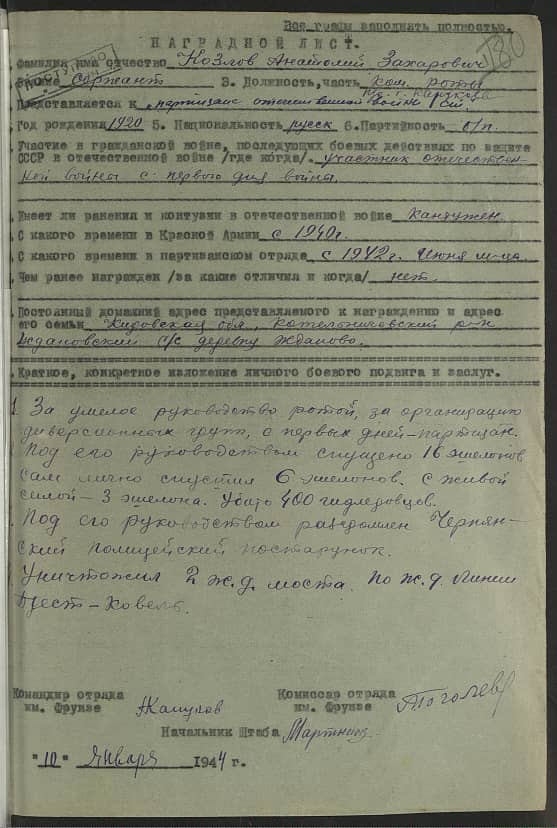 Все графы заполнять полностью.
180
НАГРАДНОЙ ЛИСТ.
Фамилия имя отчество Козлов Анатолий Захарович
Звание Сержант 3. Должность, часть Ком. роты
Представляется к "партизане отечественной войны" I ст.
Год рождения 1920 5. Национальность русск 6. Партийность б/п.
Участие в гражданской войне, последующих боевых действиях по защите
СССР в отечественной войне /где когда/. участник отечествен-
ной войны с первого дня войны.
Имеет ли ранения и контузии в отечественной войне Кантужен.
С какого времени в Красной Армии с 1940г.
С какого времени в партизанском отряде с 1942г. Июня м-ца.
Чем ранее награжден /за какие отличия и когда/ нет.
Постоянный домашний адрес представляемого к награждению и адрес
его семьи Кировская обл, Котельничский р-он
Ждановский с/с деревня Жданово.
Краткое, конкретное изложение личного боевого подвига и заслуг.
1 За умелое руководство ротой, за организацию
диверсионных групп, с первых дней-партизан.
Под его руководством спущено 16 эшелонов
сам лично спустил 6 эшелонов. с живой
силой - 3 эшелона. Убито 400 гидлеровцев.
Под его руководством разгромлен Чернян-
ский полицейский постарунок.
Уничтожил 2 ж.д. моста. По ж.д. линии
Брест - Ковель.
Командир отряда Комиссар отряда
им. Фрунзе им. Фрунзе
Начальник Штаба
"10" Января 1944 г.